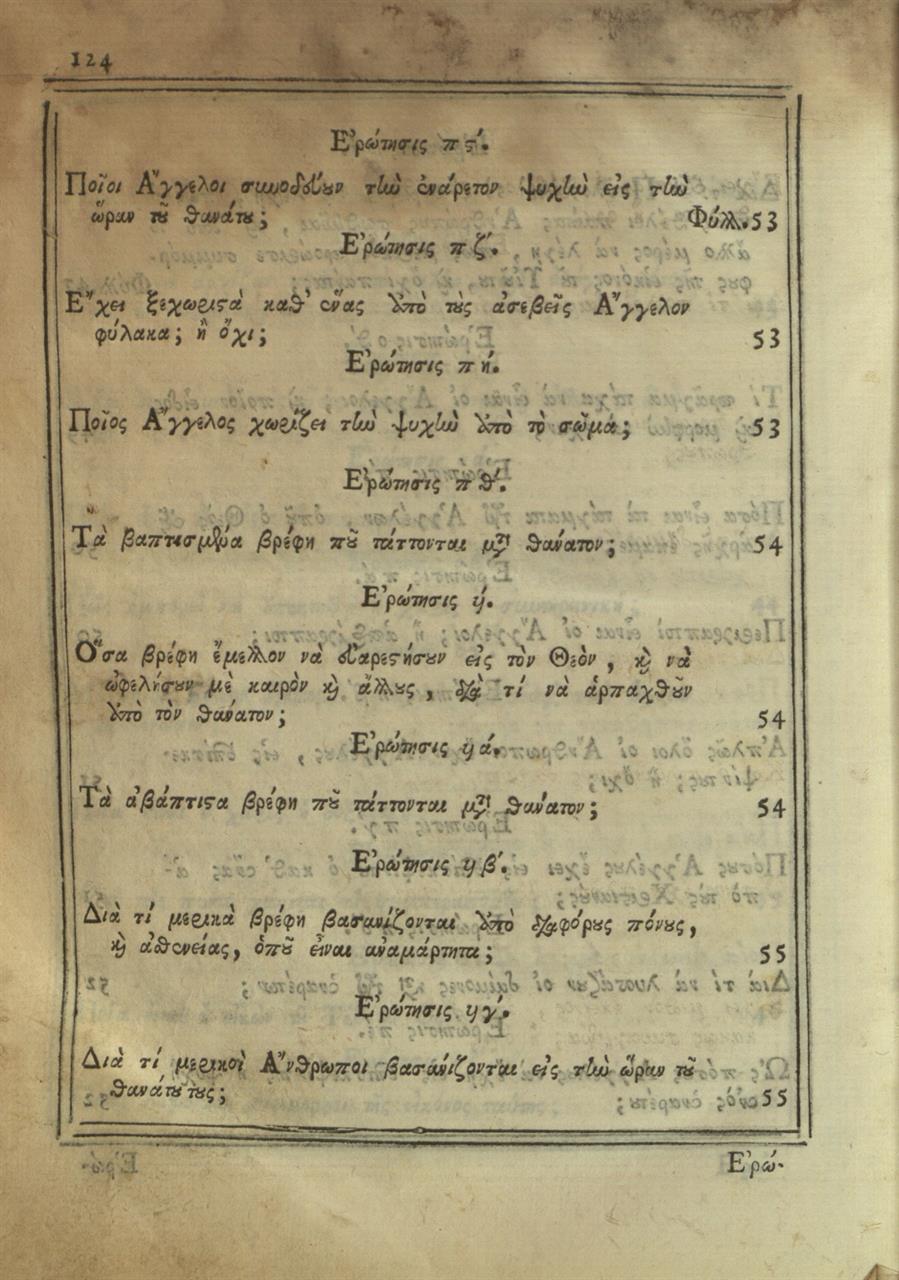 124
Ἐρώτησις πς΄.
Ποῖοι Ἄγγελοι συνοδεύουν τὴν ἐνάρετον ψυχὴν εἰς τὴν
ὥραν τοῦ θανάτου; Φύλλ. 53
Ἐρώτησις πζ΄.
Ἔχει ξεχωριστὰ καθ' ἕνας ἀπὸ τοὺς ἀσεβεῖς Ἄγγελον
φύλακα; ἢ ὄχι; 53
Ἐρώτησις πή.
Ποῖος Ἄγγελος χωρίζει τὴν ψυχὴν ἀπὸ τὸ σῶμα; 53
Ἐρώτησις πθ΄.
Τὰ βαπτισμένα βρέφη ποῦ τάττονται μετὰ θάνατον; 54
Ἐρώτησις ϟ΄.
Ὅσα βρέφη ἔμελλον νὰ εὐαρεστήσουν εἰς τὸν Θεὸν, καὶ νὰ
ὠφελήσουν μὲ καιρὸν καὶ ἄλλους, διὰ τί νὰ ἁρπαχθοῦν
ἀπὸ τὸν θάνατον; 54
Ἐρώτησις ϟά.
Τὰ ἀβάπτιστα βρέφη ποῦ τάττονται μετὰ θάνατον; 54
Ἐρώτησις ϟβ΄.
Διὰ τί μερικὰ βρέφη βασανίζονται ἀπὸ διαφόρους πόνους,
καὶ ἀσθενείας, ὁποῦ εἶναι ἀναμάρτητα; 55
Ἐρώτησις ϟγ΄.
Διὰ τί μερικοὶ Ἄνθρωποι βασανίζονται εἰς τὴν ὥραν τοῦ
θανάτου τους; 55
Ἐρώ-